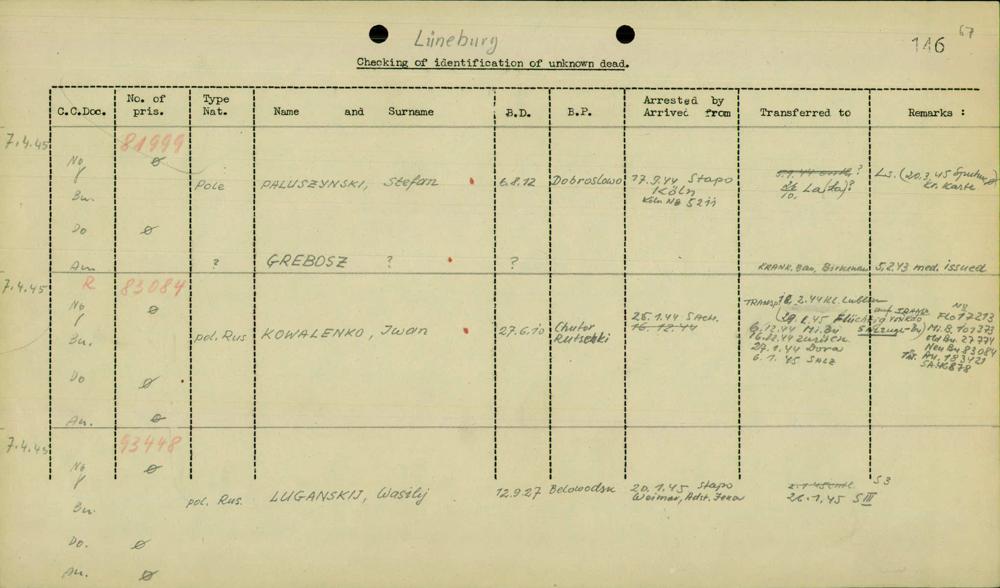 Lüneburg
146 67
Checking of identification of unknown dead.
C.C.Doc. No. of pris. Type Nat. Name and Surname B.D. B.P. Arrested by Arrived from Transferred to Remarks :
7.4.45 81999
No ø
Bu. Pole PALUSZYNSKI, Stefan 6.8.12 Dobroslowo 17.9.44 Stapo
Köln
Köln No 5211
? La(za)?
Ls. (20.3.45
Kr. Karte
Do ø
Au. ? GREBOSZ ? ? KRANK. Bau, Birkenau 5.2.43 med. issued
7.4.45 R 83084
No ø
Bu. pol. Rus KOWALENKO, Iwan 27.6.10 Chutor
Rutschki
25.1.44 Sach.
16.12.44
TRANSP. 18.2.44 Kl. Lublin
6.12.44 Mi. Bu
16.12.44 zurück
27.1.44 Dora
6.1.45 SALZ
No
Flo 17213
Mi. B. 101273
old Bu. 27774
Neu Bu 83084
Tät. Au. 183421
Do ø
Au. ø
7.4.45 93448
No ø
Bu. pol. Rus. LUGANSKIJ, Wasilij 12.9.27 Belowodsk 20.1.45 Stapo
Weimar, Adst. Jena
26.1.45 SIII
S3
Do. ø
Au. ø